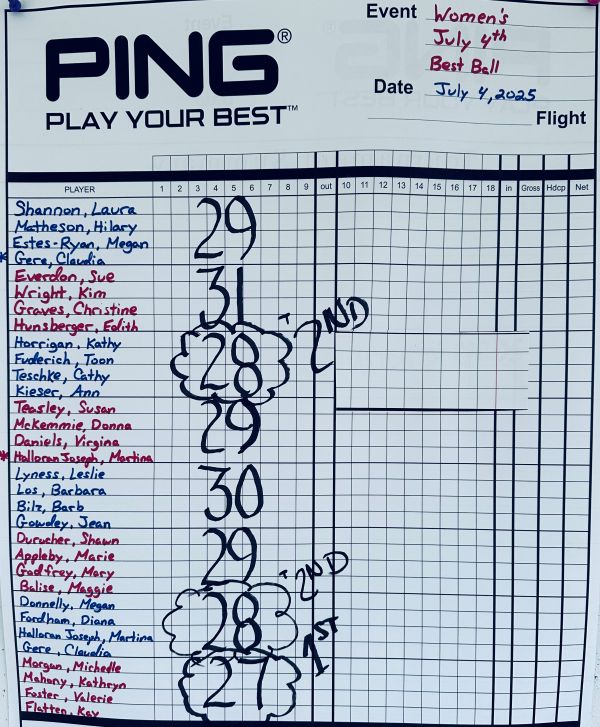 Event Women's
July 4th
Best Ball
PING®
PLAY YOUR BEST™
Date July 4, 2025
Flight
PLAYER 1 2 3 4 5 6 7 8 9 out 10 11 12 13 14 15 16 17 18 in Gross Hdcp Net
Shannon, Laura
Matheson, Hilary
Estes-Ryan, Megan
* Gere, Claudia
29
Everdon, Sue
Wright, Kim
Graves, Christine
Hunsberger, Edith
31
Horrigan, Kathy
Fuderich, Toon
Teschke, Cathy
Kieser, Ann
28 T 2ND
Teasley, Susan
McKemmie, Donna
Daniels, Virgina
* Halloran Joseph, Martina
29
Lyness, Leslie
Los, Barbara
Bilz, Barb
Gowdey, Jean
30
Durucher, Shawn
Appleby, Marie
Godfrey, Mary
Balise, Maggie
29
Donnelly, Megan
Fordham, Diana
Halloran Joseph, Martina
Gere, Claudia
28 T 2ND
Morgan, Michelle
Mahony, Kathryn
Foster, Valerie
Flatten, Kay
27 1ST